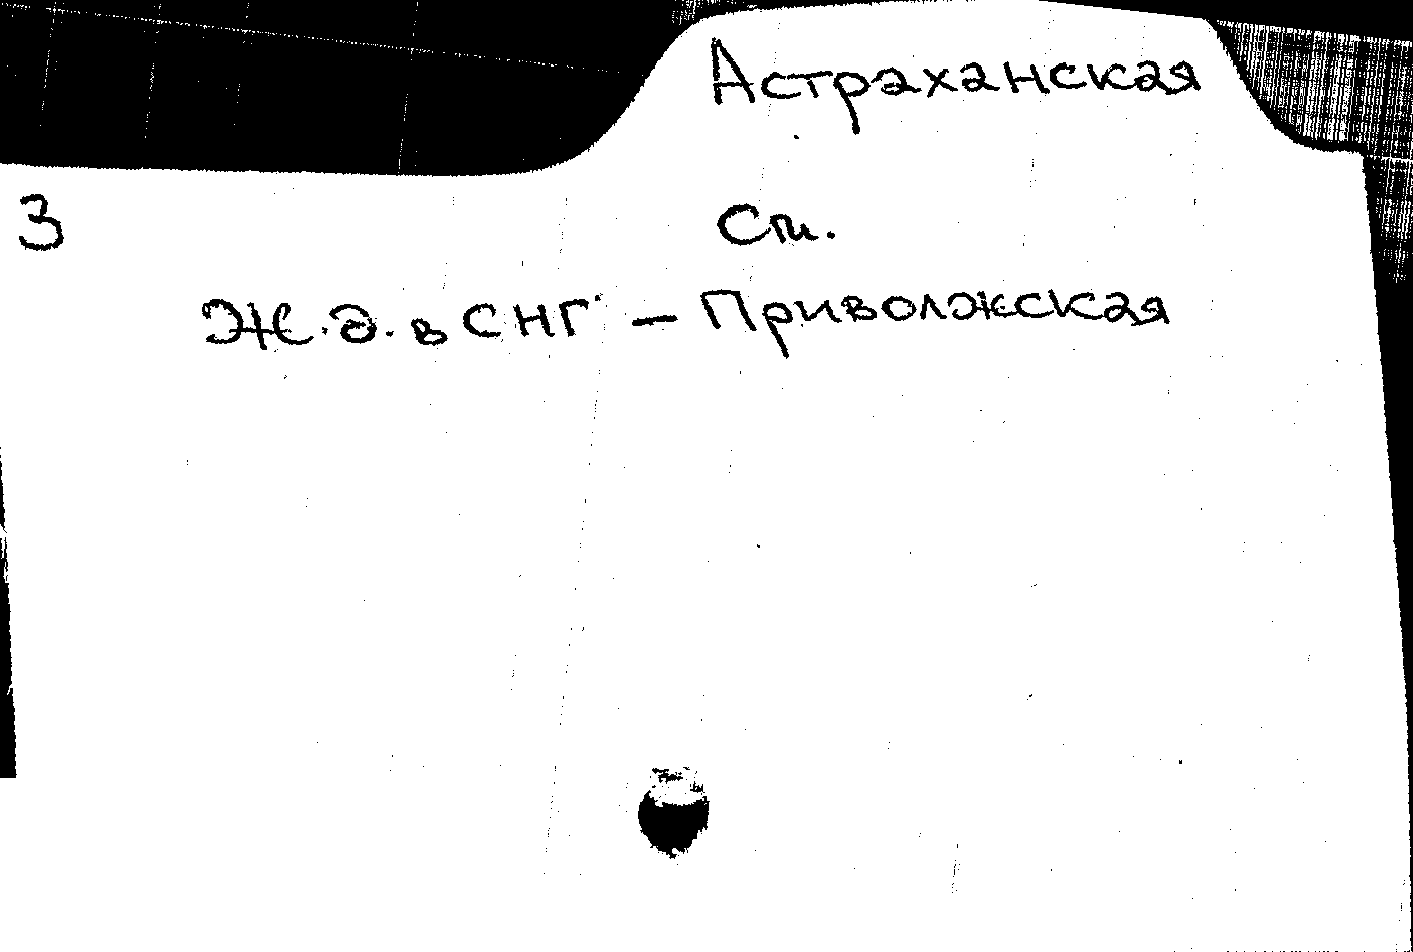 Астраханская
3
См.
Ж.д. в СНГ – Приволжская